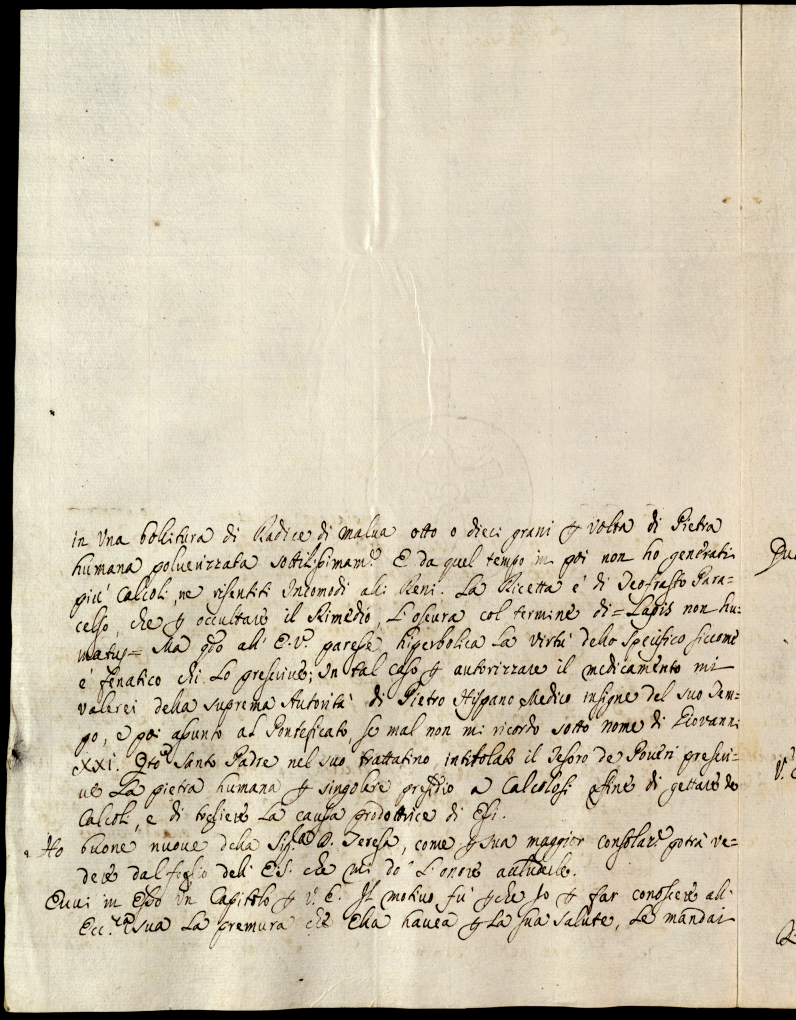 in Una bollitura di Radice di malua otto o dieci grani p volta di Pietra
humana poluerizzata sottilissimam.e E da quel tempo in poi non ho generati
piu' Calcoli, ne risentiti Incomodi alli Reni. La Ricetta è di Teofrasto Para=
celso, che p occultare il Rimedio, L'oscura col termine di= Lapis non hu=
matus= Ma q̃do all' E.V. paresse hiperbolica La virtù dello Specifico siccome
è fanatico chi Lo prescriue; In tal caso p autorizzare il medicamento mi
valerei della suprema Autorità di Pietro Hispano Medico insigne del suo Tem=
po, e poi apunto al Pontificato, se mal non mi ricordo sotto nome di Giovanni
XXI. Q̃to Santo Padre nel suo trattatino intitolato il Tesoro de Poueri prescri=
ue La pietra humana p singolare presidio a Calcolosi affine di gettare
Calcoli, e di togliere La causa produttrice di Essi.
Ho buone nuoue della Sig.ra D. Teresa, come p sua maggior consolaz.e potrà ve=
dere dal foglio dell' E.S. che mi do' L'onore
Euui in Esso Un Capitolo p V.E. Il motiuo fu' pche Io p far conoscere all'
Ecc.za sua La premura che Ella hauea p La sua salute, Le mandai